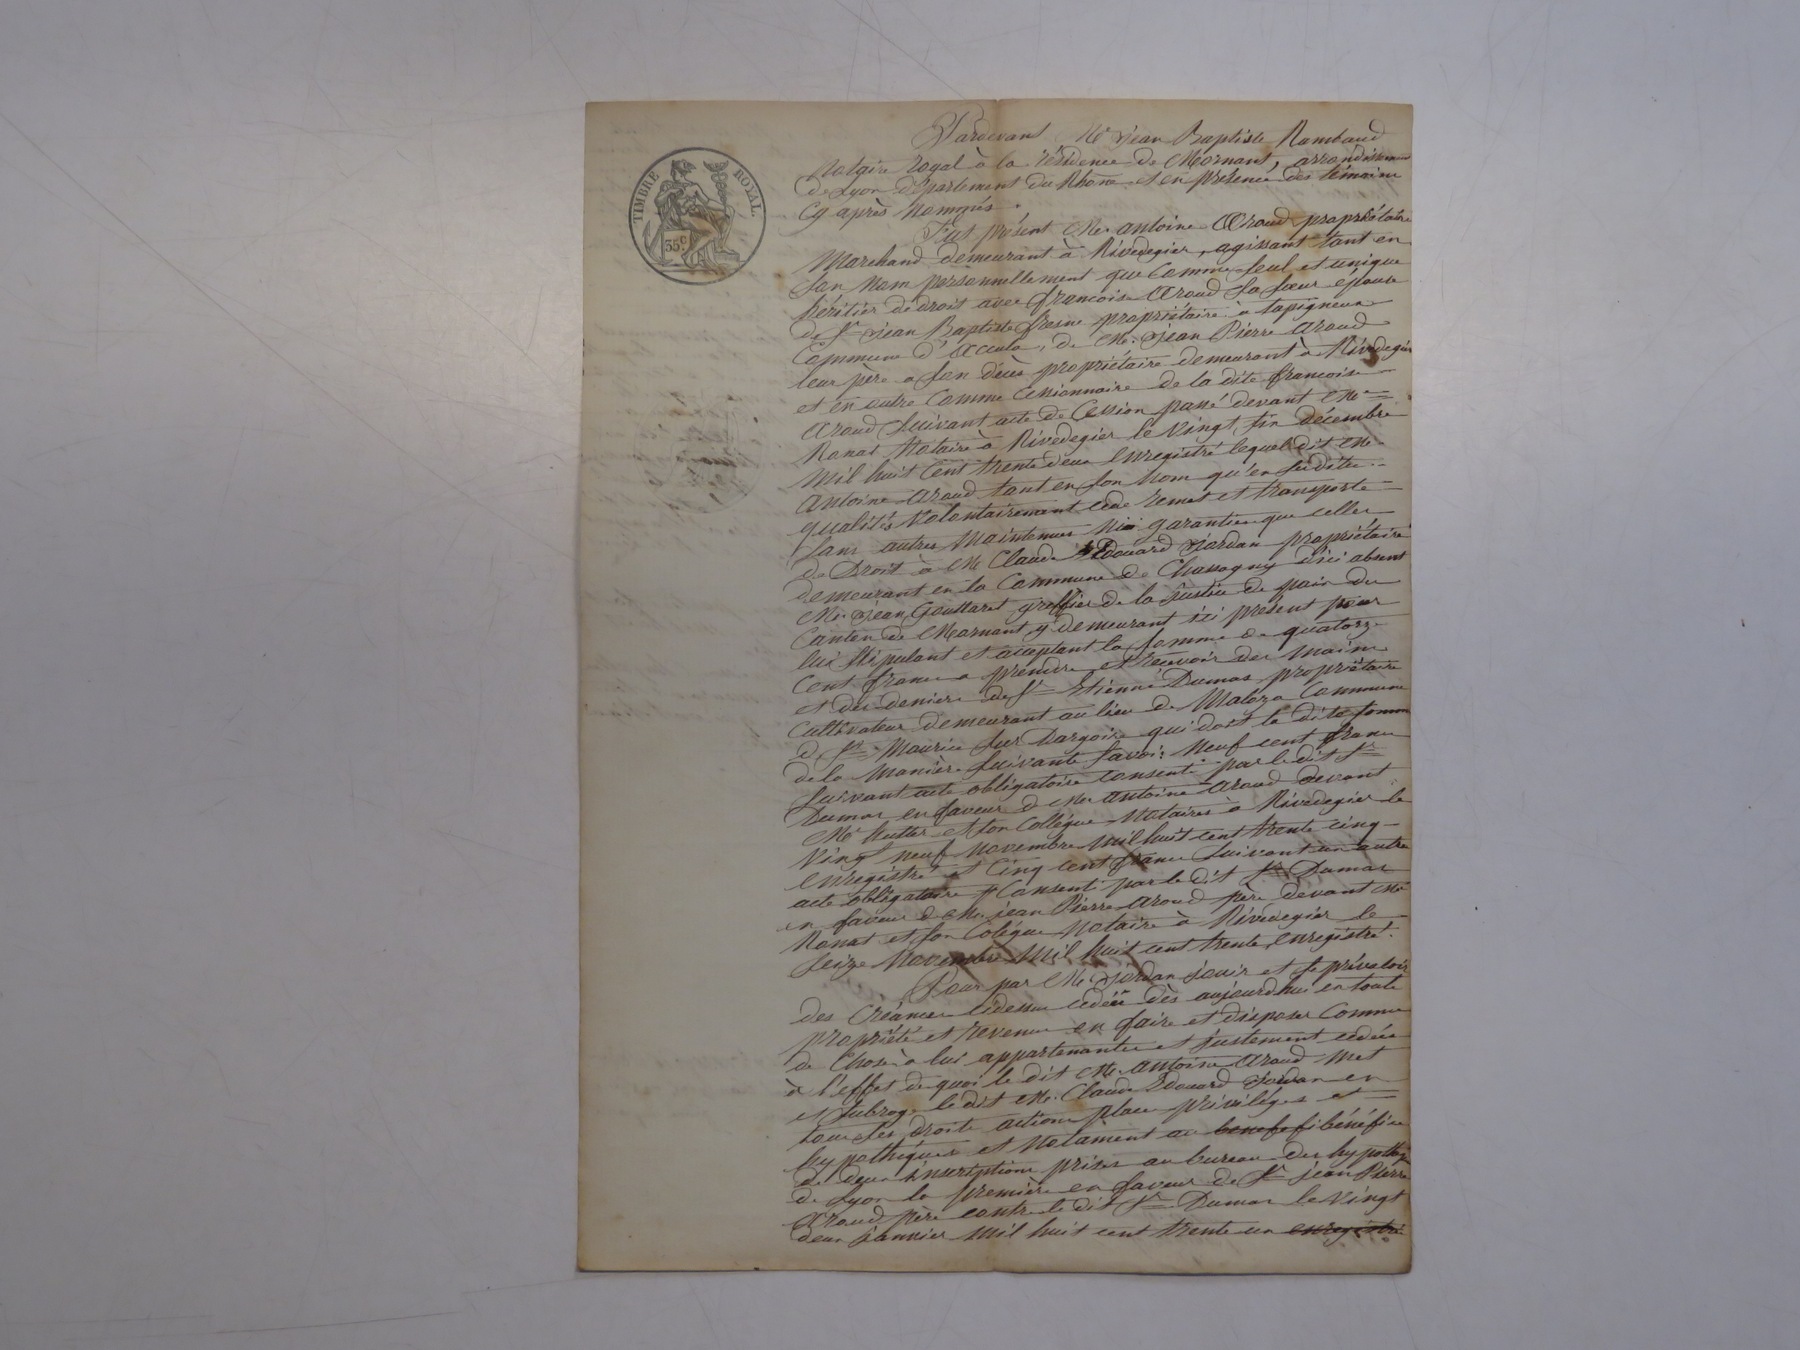 TIMBRE ROYAL.
35c
Pardevant Me Jean Baptiste Rambaud
Notaire royal à la résidence de Mornant, arrondissement
de Lyon département du Rhône et en présence des témoins
cy après nommés.
Fut présent Mr antoine Araud propriétaire
Marchand demeurant à Rivedegier, agissant tant en
son nom personnellement que comme seul et unique
héritier de droit avec francoise Araud sa sœur épouse
de Sr Jean Baptiste fresne propriétaire à tapigneux
Commune d', de Mr Jean Pierre Araud
leur père a son décès propriétaire demeurant à Rivedegier
et en outre comme cessionnaire de la dite francoise
Araud suivant acte de Cession passé devant Me
Ranat Notaire à Rivedegier le vingt six décembre
mil huit cent trente deux enregistré lequel dit Mr
Antoine Araud tant en son nom qu'en sudites
qualités volontairement cède remet et transporte
sans autres maintenues ni garanties que celles
de Droit à Mr Claude Edouard Jordan propriétaire
demeurant en la Commune de Chassagny d'ici absent
Mr Jean Gouttaret greffier de la justice de paix du
Canton de Mornant y demeurant ici présent pour
lui stipulant et acceptant la somme de quatorze
cent francs a prendre et recevoir des mains
et des deniers de Sr Etienne Dumas propriétaire
cultivateur demeurant au lieu de Commune
de St Maurice sur Dargoire qui doit la dite somme
de la manière suivante savoir Neuf cent francs
suivant acte obligatoire consenti par le dit Sr
Dumas en faveur de Mr antoine Araud devant
Me et son Collégue Notaires à Rivedegier le
vingt neuf novembre mil huit cent trente cinq
enregistré et Cinq cent francs suivant un autre
acte obligatoire consenti par le dit Sr Dumas
en faveur de Mr jean Pierre Araud père devant Me
Ranat et son Colégue Notaire à Rivedegier le
seize Novembre Mil huit cent trente, enregistré.
Pour par Mr Jordan jouir et se prévaloir
des Créances cidessus cédées dès aujourdhui en toute
propriété et revenus en faire et disposer comme
de Choses à lui appartenantes et justement cédées
à l'effet de quoi le dit Mr Antoine Araud met
et subroge le dit Mr Claude Edouard Jordan en
tous ses droits actions place privilèges et
hypothéques et notament au benefefi bénéfice
de deux inscriptions prises au bureau des hypothèq
de Lyon la première en faveur de Sr jean Pierre
Araud père contre le dit Sr Dumas le vingt
deux janvier mil huit cent trente un enregistré